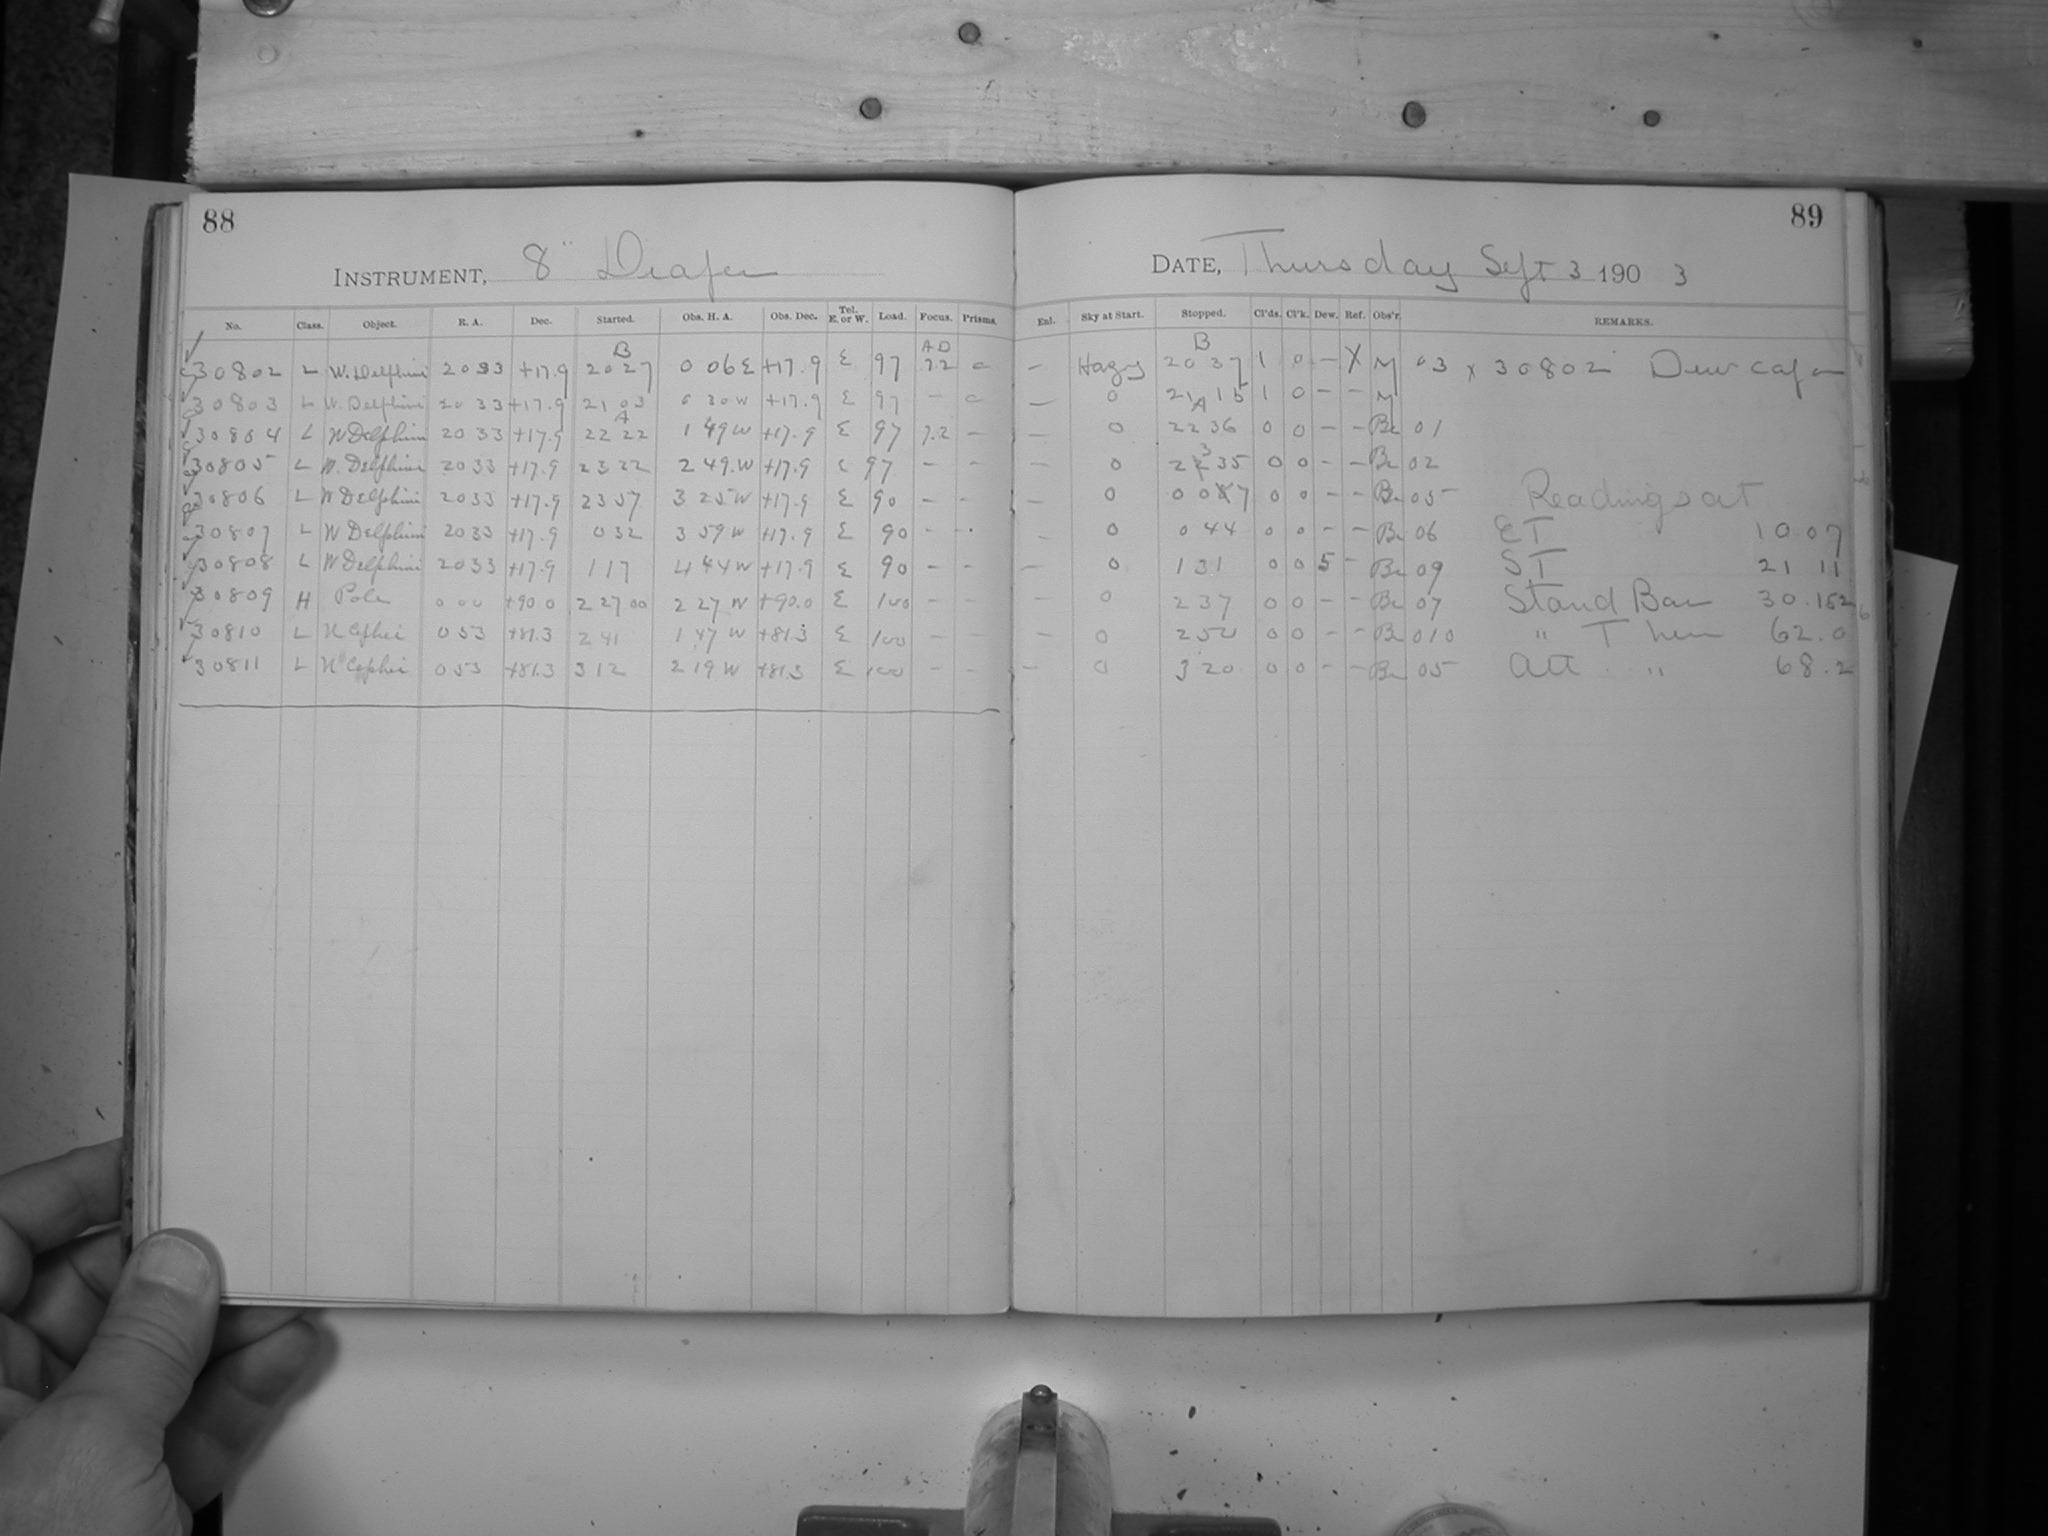 88
89
INSTRUMENT, 8" Draper
DATE, Thursday Sept 3 1903
No. Class. Object. R. A. Dec. Started. Obs. H. A. Obs. Dec. Tel. E. or W. Load. Focus. Prisms. Enl. Sky at Start. Stopped. Cl'ds. Cl'k. Dew. Ref. Obs'r. REMARKS.
B AD B
30802 L W. Delphini 20 33 +17.9 20 27 0 06 E +17.9 E 97 7.2 — Hazy 20 37 1 0 – X M 03 x 30802 Dew cap
30803 L W. Delphini 20 33 +17.9 21 03 0 30 W +17.9 E 97 – — 0 21 15 1 0 – – M
A A
30804 L W Delphini 20 33 +17.9 22 22 1 49 W +17.9 E 97 7.2 – — 0 22 36 0 0 – – Be 01
30805 L W. Delphini 20 33 +17.9 23 22 2 49. W +17.9 E 97 – – — 0 23 35 0 0 – – Be 02
30806 L W Delphini 20 33 +17.9 23 57 3 25 W +17.9 E 90 – – — 0 0 0 7 0 0 – – Be 05 Readings at
30807 L W Delphini 20 33 +17.9 0 32 3 59 W +17.9 E 90 – – – 0 0 44 0 0 – – Be 06 ET 10.07
30808 L W Delphini 20 33 +17.9 1 17 4 44 W +17.9 E 90 – – — 0 1 31 0 0 5 – Be 09 ST 21 11
30809 H Pole 0 00 +90 0 2 27 00 2 27 W +90.0 E 100 – – – 0 2 37 0 0 – – Be 07 Stand Bar 30.152
30810 L U Cephei 0 53 +81.3 2 41 1 47 W +81.3 E 100 – – – 0 2 50 0 0 – – Be 010 " Ther 62.0
30811 L U Cephei 0 53 +81.3 3 12 2 19 W +81.3 E 100 – – — 0 3 20 0 0 – – Be 05 Att " 68.2